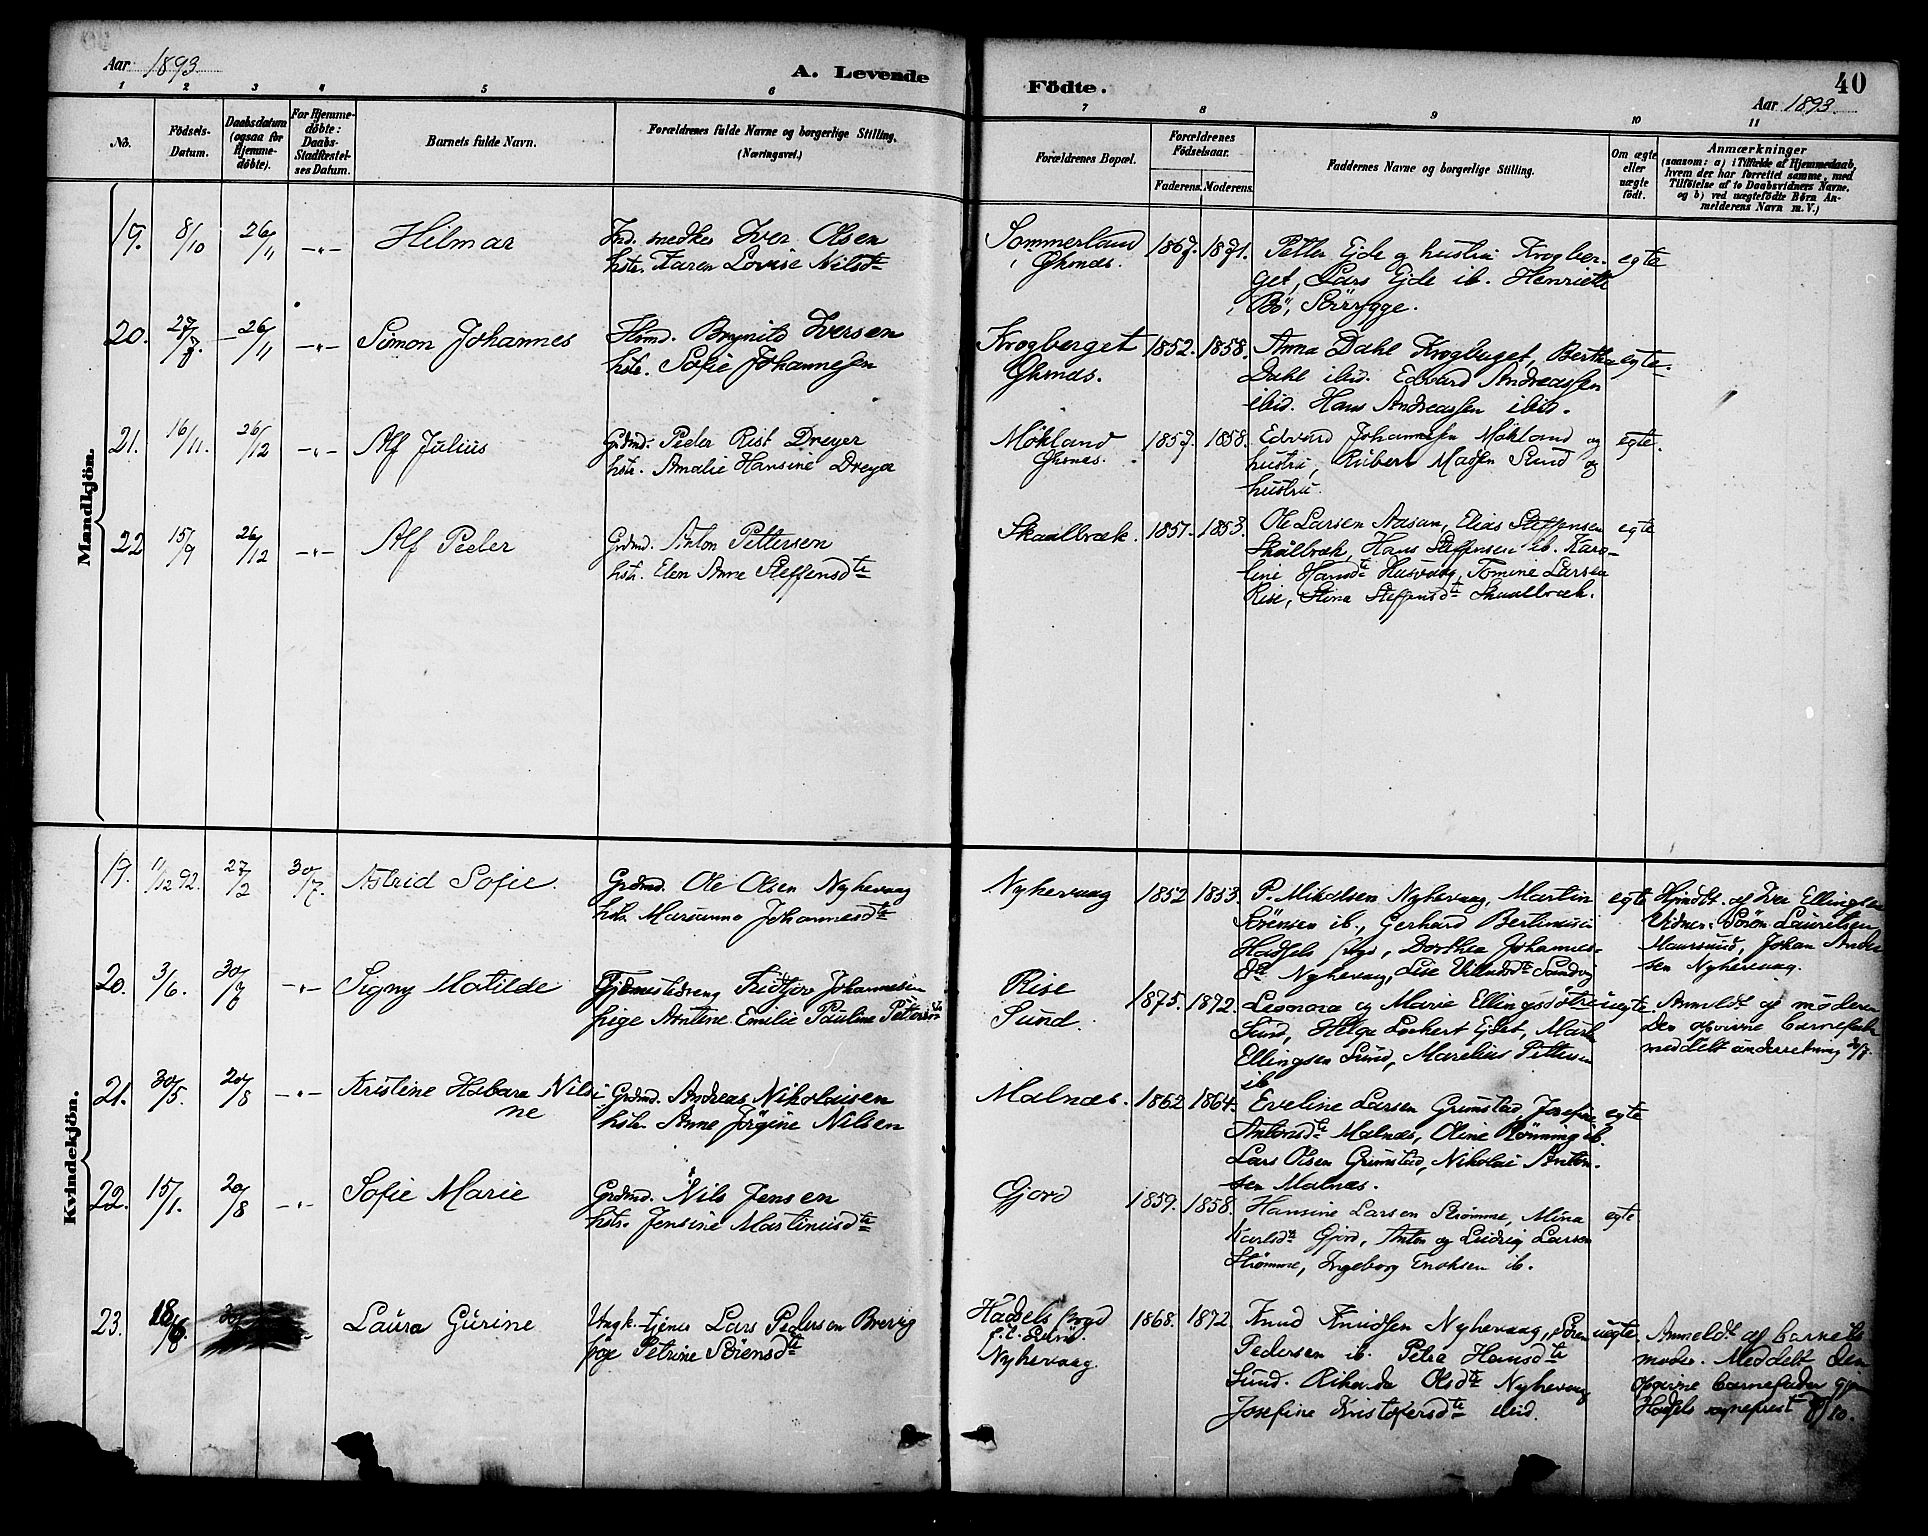 Aar 1893
A. Levende
Födte.
40
Aar 1893
1 2 3 4 5 6 7 8 9 10 11
No.
Födsels-
Datum.
Daabsdatum
(ogsaa for
Hjemme-
döbte).
For Hjemme-
döbte:
Daabs-
Stadfæstel-
ses Datum.
Barnets fulde Navn.
Forældrenes fulde Navne og borgerlige Stilling.
(Næringsvei.)
Forældrenes Bopæl.
Forældrenes
Födselsaar.
Faderens. Moderens.
Faddernes Navne og borgerlige Stilling.
Om ægte
eller
uægte
födt.
Anmærkninger
(saasom: a) i Tilfælde af Hjemmedaab,
hvem der har forrettet samme, med
Tilföielse af to Daabsvidners Navne,
og b) ved uægtefödte Börn An-
melderens Navn m. V.)
Mandkjön.
19. 8/10 26/11 -"- Hilmar
Ind. snedker Iver Olsen
hstr. Karen Lovise Nilsdtr
Sommerland
Øksnes.
1867. 1871.
Petter Ejde og hustru Krogber-
get, Lars Ejde ib. Henriette
Bö, Störrygge.
egte
20. 27/7. 26/11 -"- Simon Johannes
Hmd. Brynild Iversen
hstr. Sofie Johannesen
Krogberget
Øksnes.
1852. 1858.
Anna Dahl Krogberget, Bertha
Dahl ibid. Edvard Andreassen
ibid. Hans Andreassen ibid.
egte.
21. 16/11. 26/12 -"- Alf Julius
Grdmd. Peder Rist Dreyer
hstr. Amalie Hansine Dreyer
Møkland
Øksnes.
1857. 1858.
Edvard Johannesen Møkland og
hustru, Rubert Madsen Sund og
hustru.
egte.
22 15/9 26/12 -"- Alf Peder
Grdmd. Anton Pettersen
hstr. Elen Anne Steffensdtr
Skaalbræk.
1857. 1853.
Ole Larsen Aasan, Elias Steffensen
Skålbræk, Hans Steffensen ib. Karo-
line Hansdtr Husvaag, Tomine Larsen
Rise, Stina Steffensdtr Skaalbræk.
egte
Kvindekjön.
19. 1/12 92. 27/2 30/7. Astrid Sofie.
Grdmd. Ole Olsen Nyhevaag
hstr. Marianna Johannesdtr
Nyhevaag
1852 1853.
P. Mikalsen Nyhevaag, Martin
Sörensen ib., Gerhard Bertinusen
Hadsels , Dorthea Johannes-
dtr Nyhevaag, Lise Sandvig
egte
Hjmdt. af Iver Ellingsen
Vidner: Sören Lauritsen
Maursund, Johan Ander
sen Nyhevaag.
20. 3/6. 30/7 -"- Signy Matilde
Tjenestedreng Fridtjov Johannesen
pige Antine Emilie Pauline Pettersdtr
Rise
Sund.
1875. 1872.
Leonora og Marie Ellingsdötre
Sund, Helga Lockert Ejdet, Mark
Ellingsen Sund, Marelius Pettersen
ib.
uegte
Anmeldt af moderen
Den opgivne barnefader
meddelt underretning 30/7.
21. 30/5. 20/8 -"- Kristine Habara Nilsi
ne
Grdmd. Andreas Nikolaisen
hstr. Anne Jörgine Nilsen
Malnæs.
1862 1864.
Eveline Larsen Grimstad, Josefine
Antonsdtr Malnæs, Oline Rønning ib.
Lars Olsen Grimstad, Nikolai Anton-
sen Malnæs.
egte
22. 15/1. 20/8 -"- Sofie Marie
Grdmd. Nils Jensen
hstr. Jensine Martinusdtr
Gjord
1859. 1858.
Hansine Larsen Strømme, Mina
Karlsdtr Gjord, Anton og Ludvig Larsen
Strømme, Ingeborg Enoksen ib.
egte
23. 18/6 Laura Gurine
Ungk. tjener Lars Pedersen Brevig
pige Petrine Sörensdtr
Hadsels
Nyhevaag.
1868. 1872
Knud Knudsen Nyhevaag, Sören
Pedersen ib. Petra Hansdtr
Sund. Rikarda Olsdtr Nyhevaag
Josefine Kristofersdtr ibid.
uegte
Anmeldt af barnets
moder. Meddelt den
opgivne barnefader gjen
Hadsels sogneprest 7/10.